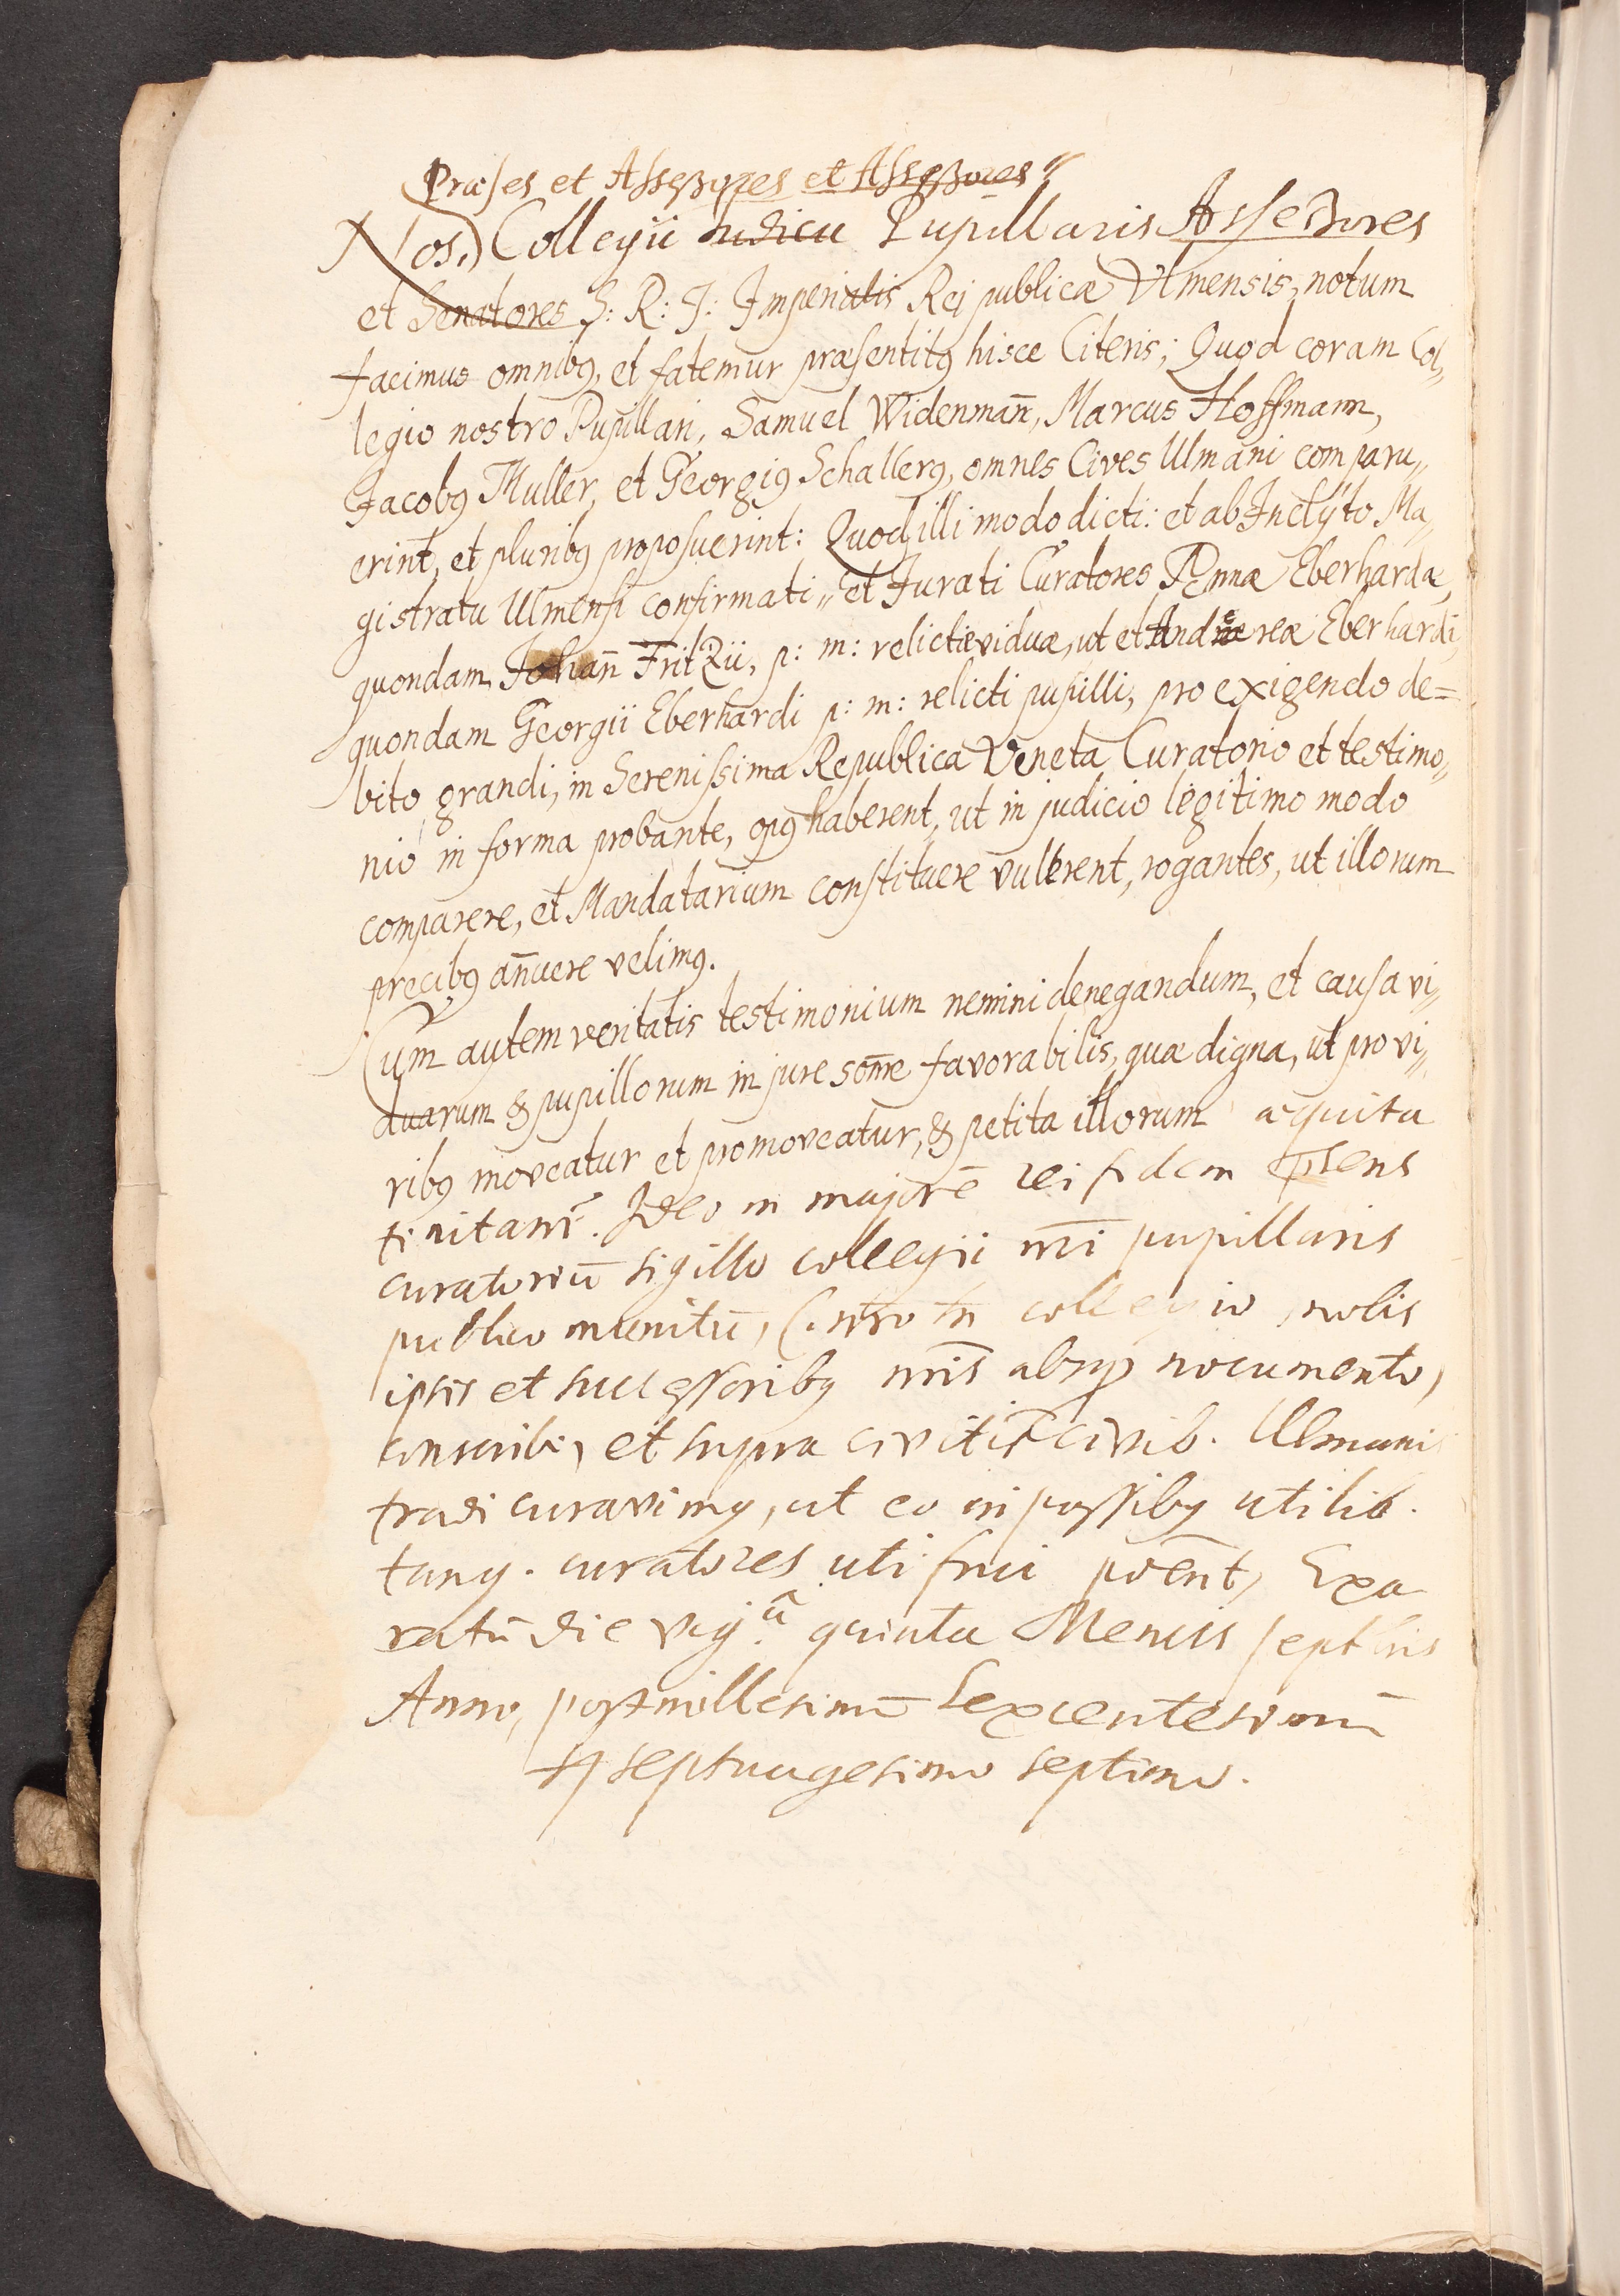 Præses et Assessores et Assessores
Nos Collegii Iudicii Pupillaris Assessores
et Senatores S: R: J: Imperialis Rei publicæ Vlmensis, notum
facimus omnibꝰ, et fatemur præsentibꝰ hisce Literis; Quod coram Col„
legio nostro Pupillari, Samuel Widenman̄, Marcus Hoffmann,
Jacobꝰ Muller, et Georgiꝰ Schallerꝰ, omnes Cives Ulmani comparu„
erint, et pluribꝰ proposuerint: Quod illi modo dicti: et ab Inclÿto Ma„
gistratu Ulmensi confirmati„ et Jurati Curatores Annæ Eberhardæ,
quondam Johan̄ Fritzii, p: m: relictæ viduæ, ut et Andreæ Eberhardi,
quondam Georgii Eberhardi p: m: relicti pupilli, pro exigendo de=
bito grandi, in Serenissima Republica Veneta Curatorio et testimo„
nio in forma probante, opꝰ haberent, ut in judicio legitimo modo
comparere, et Mandatarium constituere vallerent, rogantes, ut illorum
precibꝰ an̄uere velimꝰ.
Cum autem veritatis testimonium nemini denegandum, et causa vi„
duarum & pupillorum in jure som̄e favorabilis, quæ digna, ut pro vi„
ribꝰ moveatur et promoveatur, & petita illorum æquita
ti nitant̃. Ideo in majorē rei fidem p̄sens
curatoriū sigillo collegii nr̄i pupillaris
publico munitū, (nr̄o tn̄ collegio, nobis
ipsis et successoribꝰ nr̄is absqꝫ nocumento)
conscribi, et supra civib. Ulmani
tradi curavimꝰ, ut eo in possibꝰ utilib.
tanq. curatores uti frui po͞ent, Exa
ratū die vig.ᵃ quinta Mensis septbris
Anno, post millesimū Sexcentesimū
septuagesimo septimo.